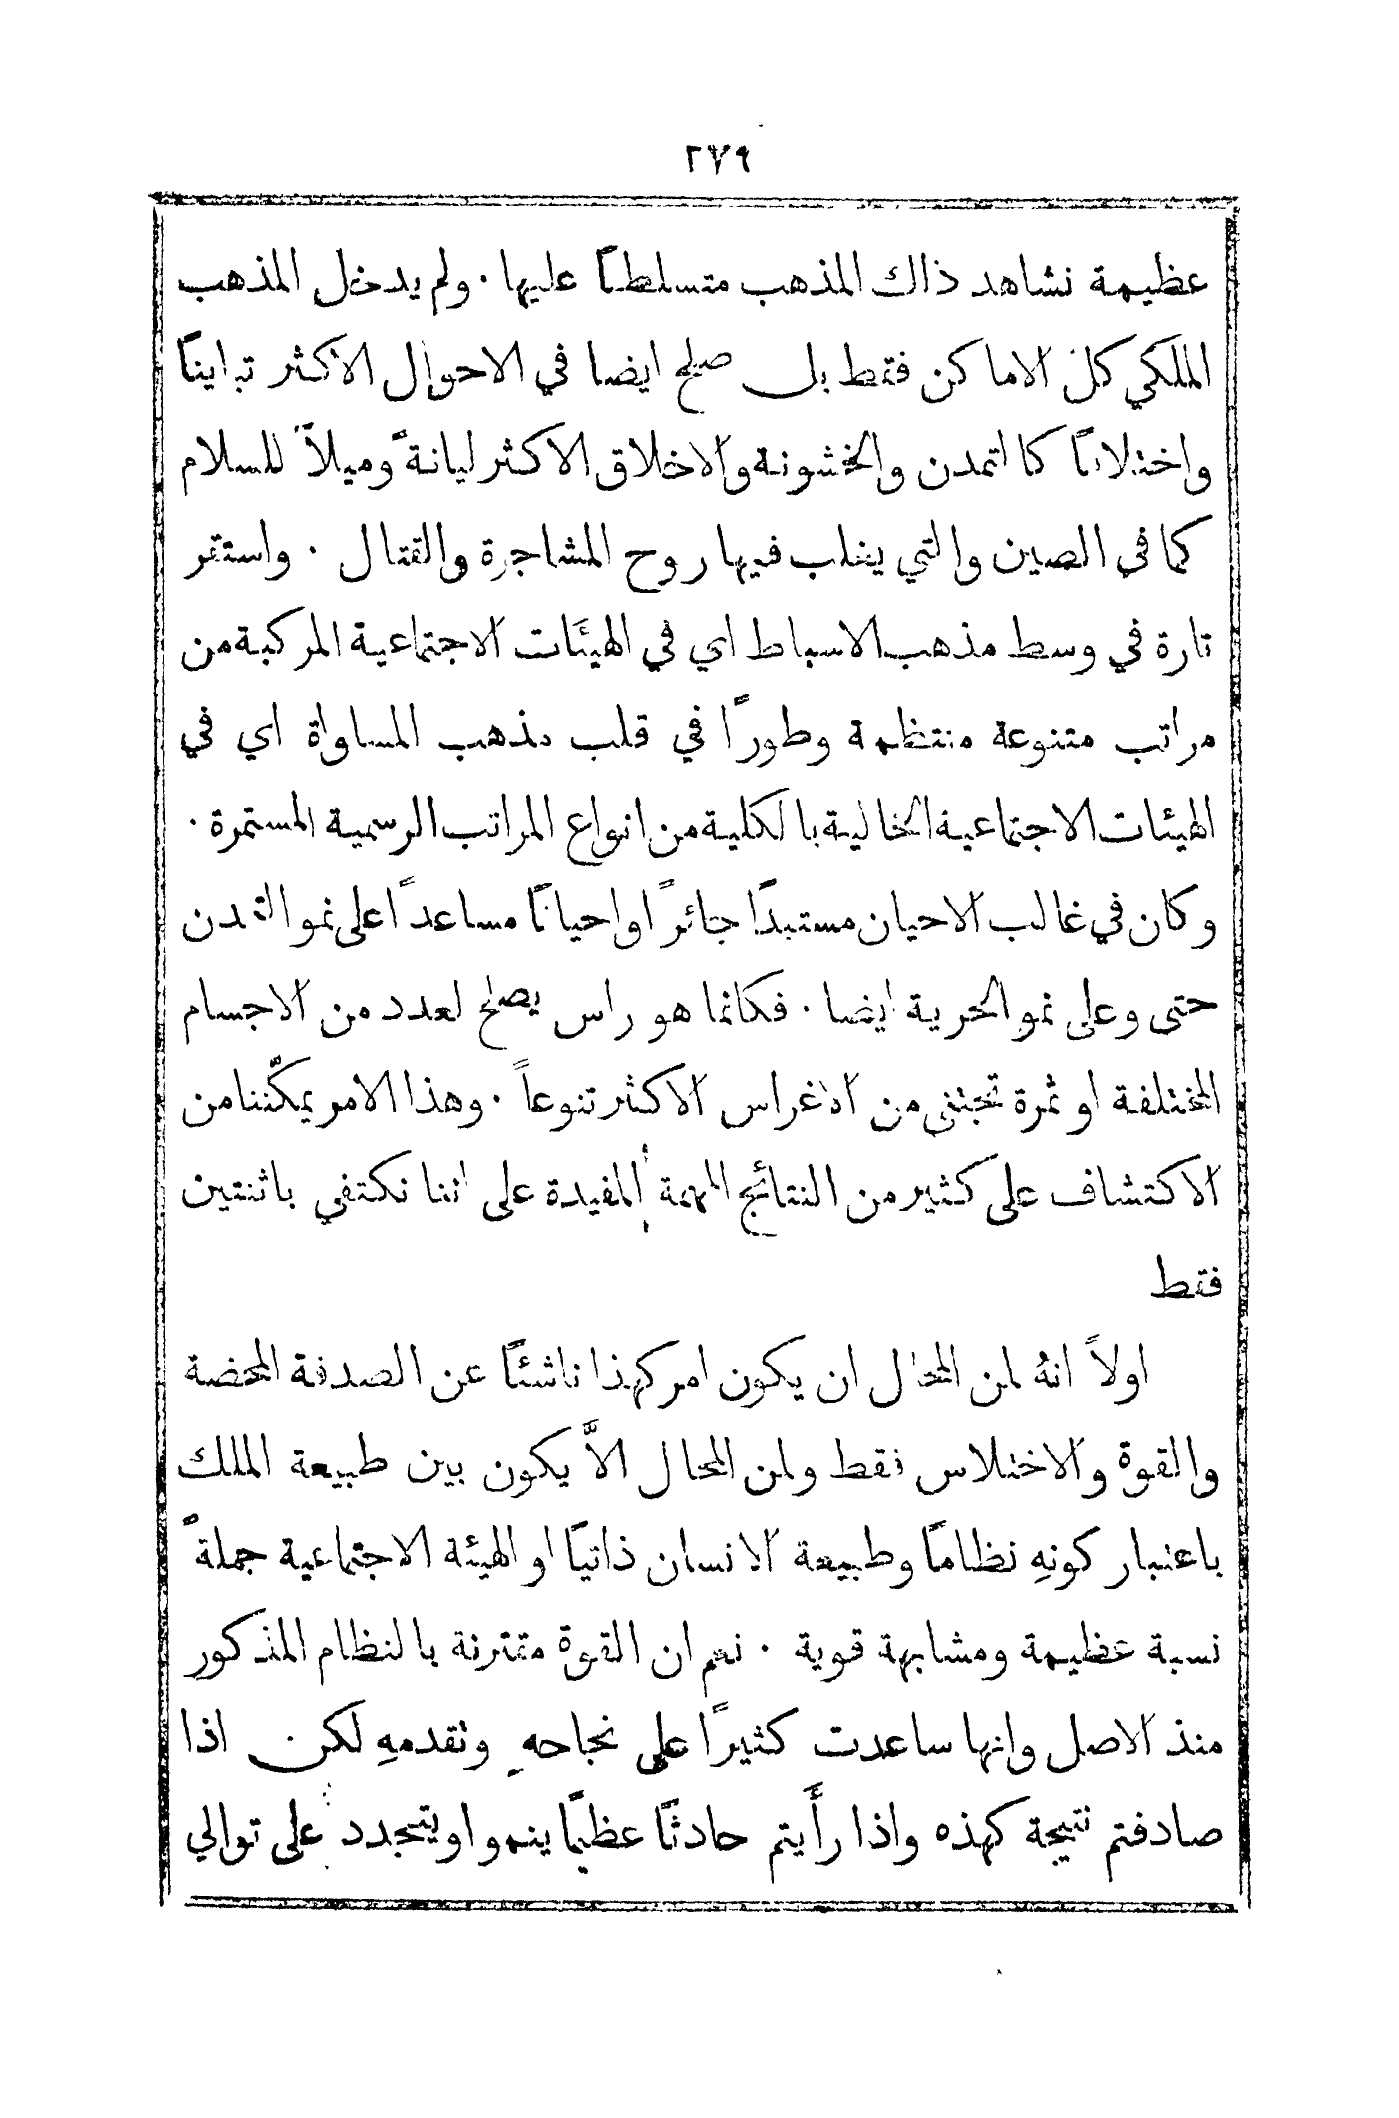 ٢٧٩
عظيمة نشاهد ذاك المذهب متسلطاً عليها . ولم يدخل المذهب
الملكي كل الاماكن فقط بل صلح ايضا في الاحوال الاكثر تباينًا
واختلافًا كالتمدن والخشونة والاخلاق الاكثر ليانةً وميلاً للسلام
كما في الصين والتي يغلب فيها روح المشاجرة والقتال . واستقر
تارة في وسط مذهب الاسباط اي في الهيئَات الاجتماعية المركبة من
مراتب متنوعة منتظمة وطورًا في قلب مذهب المساواة اي في
الهيئات الاجتماعية الخالية بالكلية من انواع المراتب الرسمية المستمرة .
وكان في غالب الاحيان مستبدًا جائرًا واحيانًا مساعدًا على نمو التمدن
حتى وعلى نمو الحرية ايضا . فكانما هو راس يصلح لعدد من الاجسام
المختلفة او ثمرة تجتنى من الاغراس الاكثر تنوعاً . وهذا الامر يمكّننا من
الاكتشاف على كثير من النتائج المهمة المفيدة على اننا نكتفي باثنتين
فقط
اولاً انهُ لمن المحال ان يكون امر كهذا ناشئًا عن الصدفة المحضة
والقوة والاختلاس فقط ولمن المحال الاَّ يكون بين طبيعة الملك
باعتبار كونهِ نظامًا وطبيعة الانسان ذاتيًا او الهيئة الاجتماعية جملةً
نسبة عظيمة ومشابهة قوية . نعم ان القوة مقترنة بالنظام المذكور
منذ الاصل وانها ساعدت كثيرًا على نجاحهِ وتقدمهِ لكن اذا
صادفتم نتيجة كهذه واذا رأَيتم حادثًا عظيمًا ينمو او يتجدد على توالي